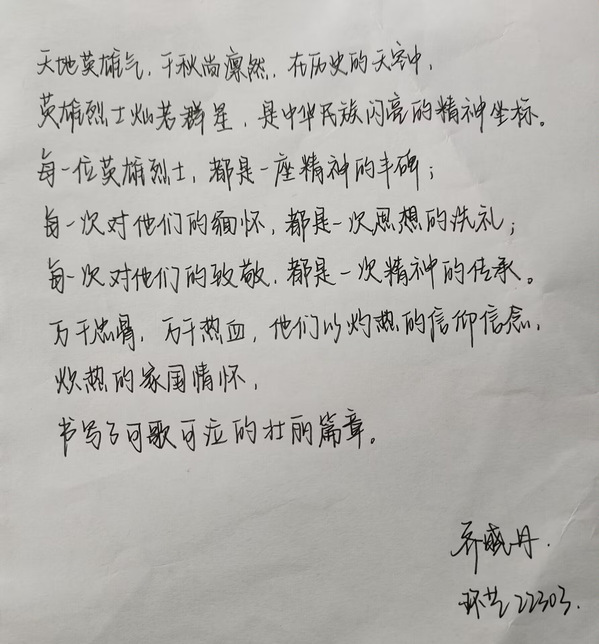 天地英雄气，千秋尚凛然，在历史的天空中，
英雄烈士灿若群星，是中华民族闪亮的精神坐标。
每一位英雄烈士，都是一座精神的丰碑；
每一次对他们的缅怀，都是一次思想的洗礼；
每一次对他们的致敬，都是一次精神的传承。
万千忠骨，万千热血，他们以灼热的信仰信念，
炽热的家国情怀，
书写了可歌可泣的壮丽篇章。
乔盛丹.
环艺22303.